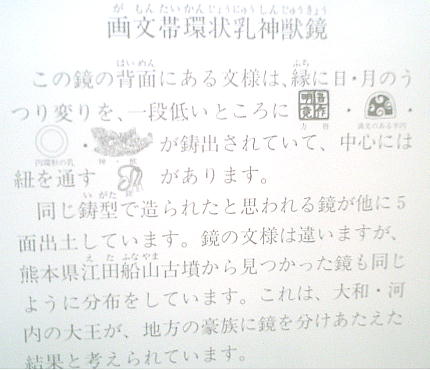 が もん たい かん じょうにゅうしんじゅうきょう
画文帯環状乳神獣鏡
はいめん ふち
この鏡の背面にある文様は、縁に日・月のう
つり変りを、一段低いところに 吾作明竟 ・ ・
方格 渦文のある半円
・ が鋳出されていて、中心には
円環形の乳 神・獣
紐を通す があります。
いがた
同じ鋳型で造られたと思われる鏡が他に5
面出土しています。鏡の文様は違いますが、
えたふなやま
熊本県江田船山古墳から見つかった鏡も同じ
ように分布をしています。これは、大和・河
内の大王が、地方の豪族に鏡を分けあたえた
結果と考えられています。